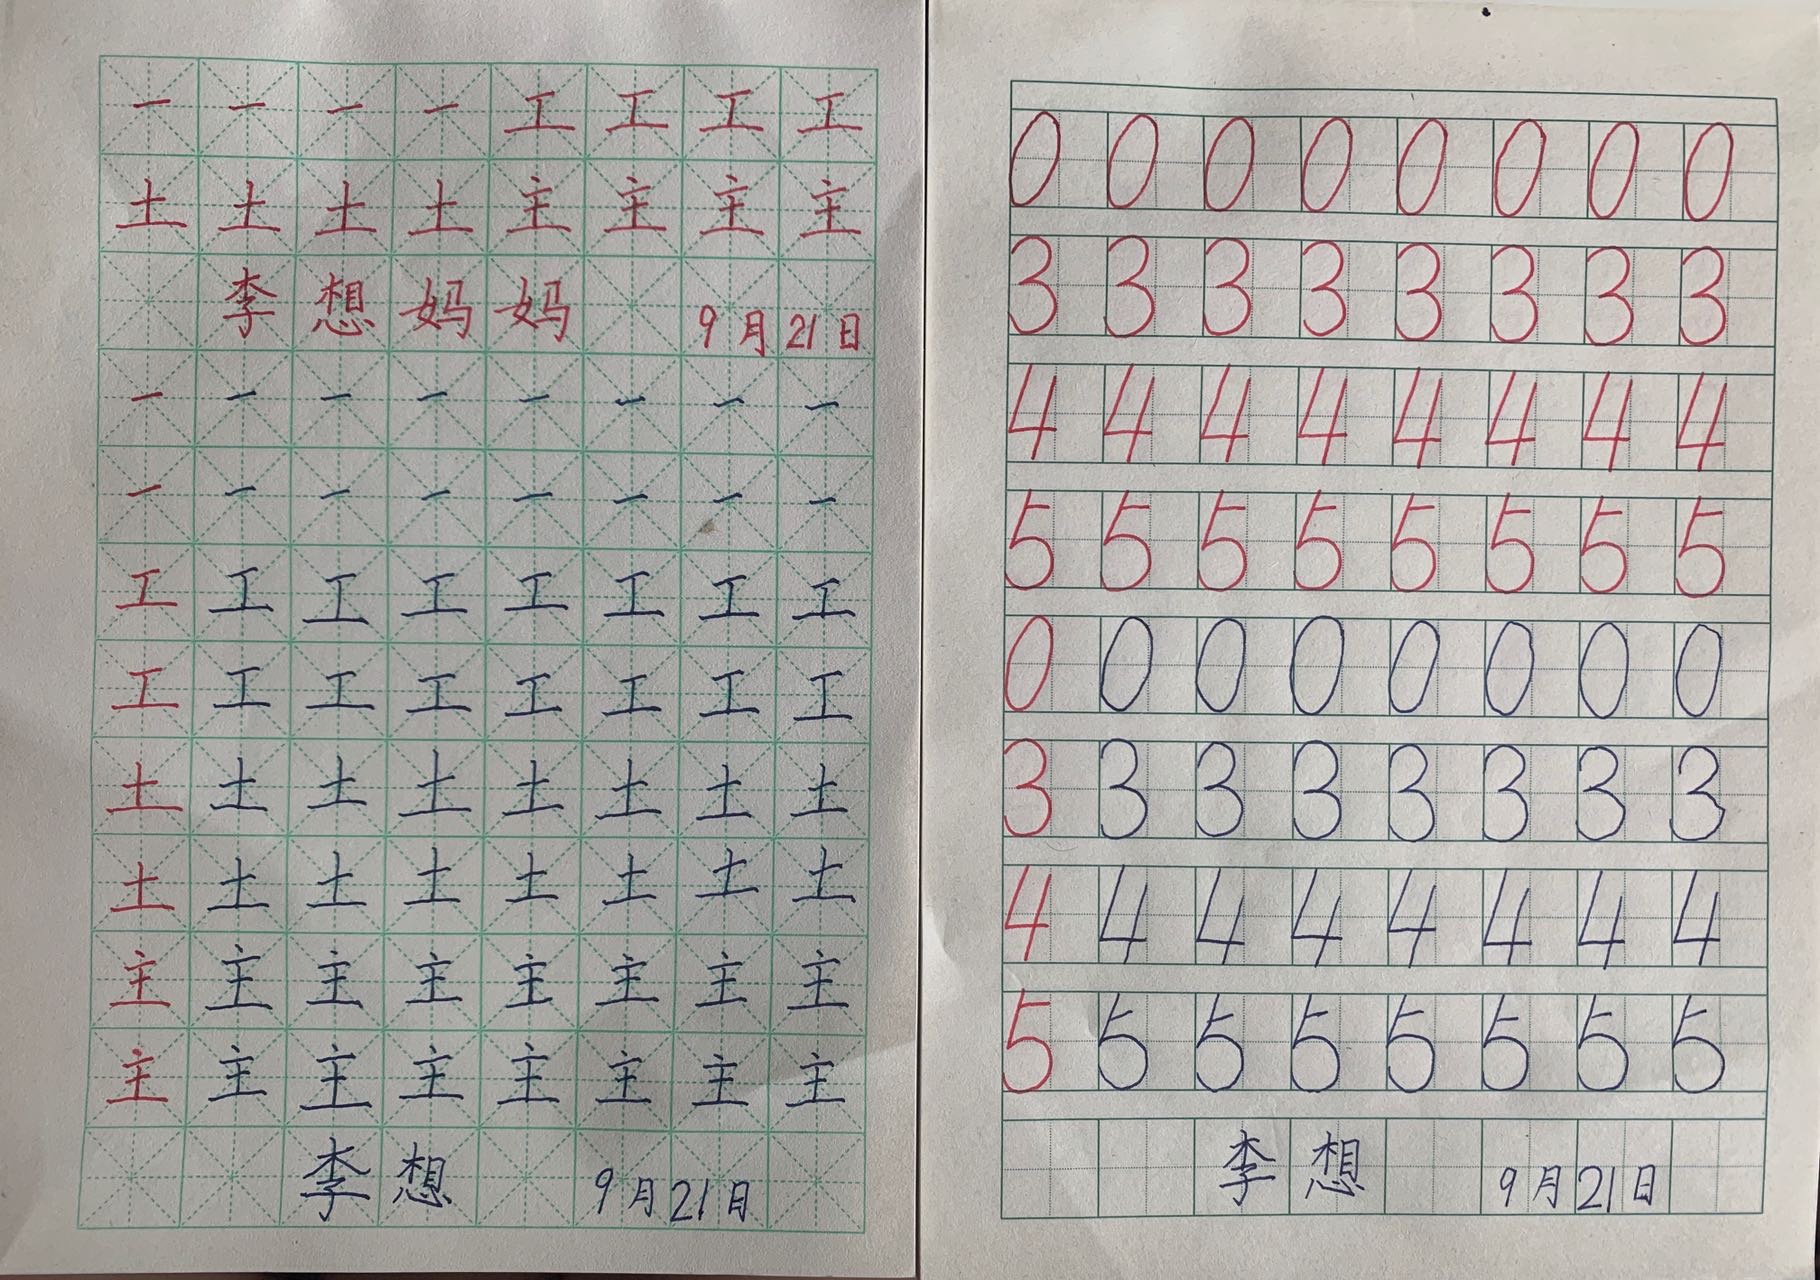 一 一 一 一 工 工 工 工
土 土 土 土 主 主 主 主
李 想 妈 妈 9月21日
一 一 一 一 一 一 一 一
一 一 一 一 一 一 一 一
工 工 工 工 工 工 工 工
工 工 工 工 工 工 工 工
土 土 土 土 土 土 土 土
土 土 土 土 土 土 土 土
主 主 主 主 主 主 主 主
主 主 主 主 主 主 主 主
李 想 9月21日
0 0 0 0 0 0 0 0
3 3 3 3 3 3 3 3
4 4 4 4 4 4 4 4
5 5 5 5 5 5 5 5
0 0 0 0 0 0 0 0
3 3 3 3 3 3 3 3
4 4 4 4 4 4 4 4
5 5 5 5 5 5 5 5
李 想 9月21日